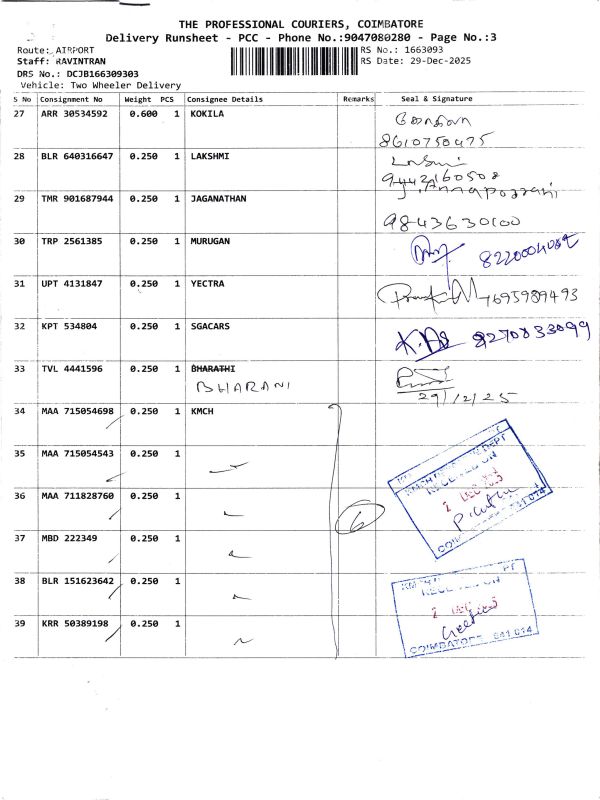 THE PROFESSIONAL COURIERS, COIMBATORE
Delivery Runsheet - PCC - Phone No.:9047080280 - Page No.:3
Route: AIRPORT
RS No.: 1663093
Staff: RAVINTRAN
RS Date: 29-Dec-2025
DRS No.: DCJB166309303
Vehicle: Two Wheeler Delivery
S No Consignment No Weight PCS Consignee Details Remarks Seal & Signature
27 ARR 30534592 0.600 1 KOKILA
கோகிலா
8610750475
28 BLR 640316647 0.250 1 LAKSHMI
9442160508
29 TMR 901687944 0.250 1 JAGANATHAN
J. Annapoorani
9843630100
30 TRP 2561385 0.250 1 MURUGAN
31 UPT 4131847 0.250 1 YECTRA
7695989493
32 KPT 534804 0.250 1 SGACARS
9270833099
33 TVL 4441596 0.250 1 BHARATHI
BHARANI
29/12/25
34 MAA 715054698 0.250 1 KMCH
35 MAA 715054543 0.250 1
36 MAA 711828760 0.250 1
6
37 MBD 222349 0.250 1
38 BLR 151623642 0.250 1
RECEIVED ON
39 KRR 50389198 0.250 1
COIMBATORE 641 014